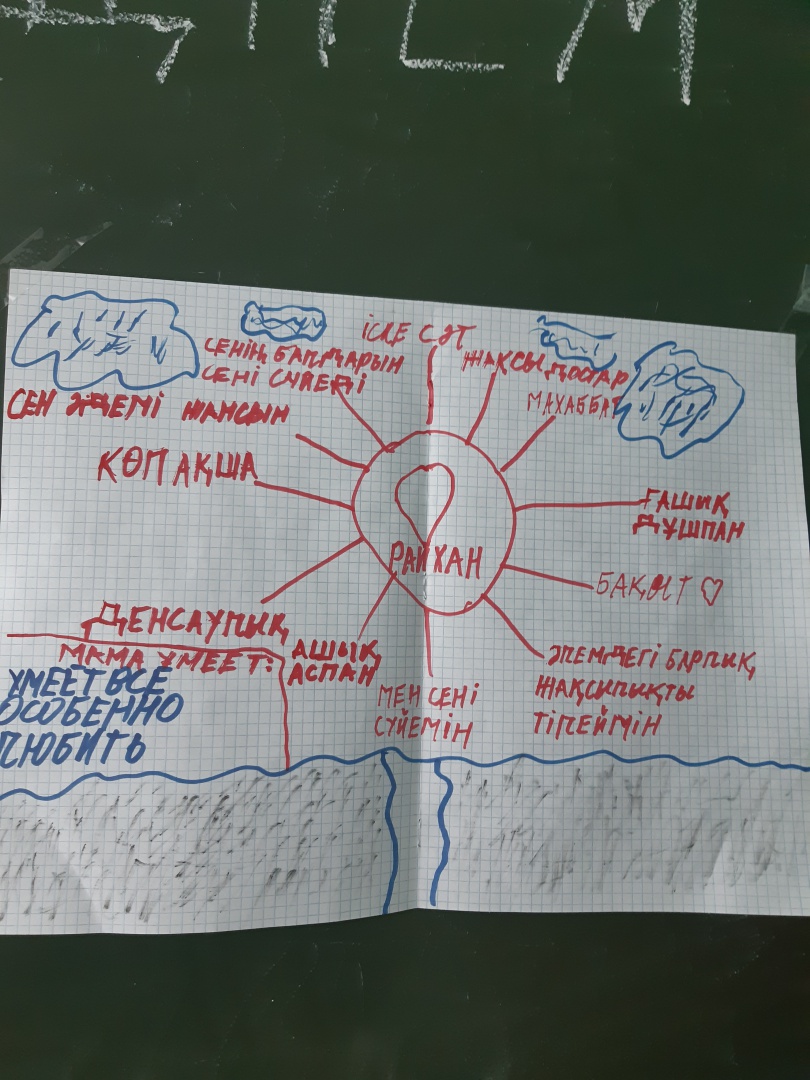 ІСКЕ СӘТ
СЕНІҢ БАЛДАРЫН
СЕНІ СҮЙЕДІ
ЖАҚСЫ ДОСТАР
МАХАББАТ
СЕН ӘДЕМІ ЖАНСЫН
КӨП АҚША
ҒАШЫҚ
ДҰШПАН
РАЙХАН
БАҚЫТ ♡
ДЕНСАУЛЫҚ
АШЫҚ
АСПАН
МЕН СЕНІ
СҮЙЕМІН
ӘЛЕМДЕГІ БАРЛЫҚ
ЖАҚСЫЛЫҚТЫ
ТІЛЕЙМІН
МАМА УМЕЕТ:
УМЕЕТ ВСЕ
ОСОБЕННО
ЛЮБИТЬ